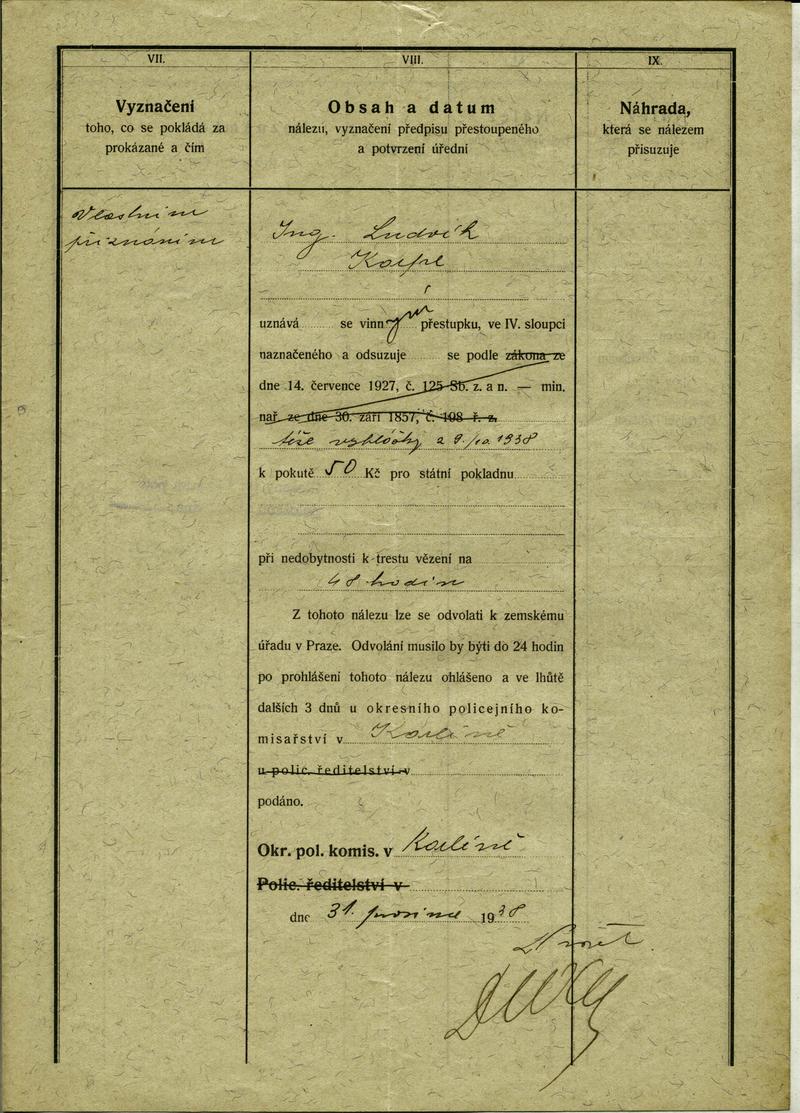 VII.
Vyznačení
toho, co se pokládá za
prokázané a čím
Vlastním
přiznáním
VIII.
Obsah a datum
nálezu, vyznačení předpisu přestoupeného
a potvrzení úřední
Ing. Ludvík
uznává se vinným přestupku, ve IV. sloupci
naznačeného a odsuzuje se podle zákona ze
dne 14. července 1927, č. 125 Sb. z. a n. — min.
nař. ze dne 30. září 1857, č. 198 ř. z.
téže vyhlášky z 9./10. 1938
k pokutě 50 Kč pro státní pokladnu
při nedobytnosti k trestu vězení na
48 hodin
Z tohoto nálezu lze se odvolati k zemskému
úřadu v Praze. Odvolání musilo by býti do 24 hodin
po prohlášení tohoto nálezu ohlášeno a ve lhůtě
dalších 3 dnů u okresního policejního ko-
misařství v Karlíně
u polic. ředitelství v
podáno.
Okr. pol. komis. v Karlíně
Polic. ředitelství v
dne 31. prosince 1938
IX.
Náhrada,
která se nálezem
přisuzuje